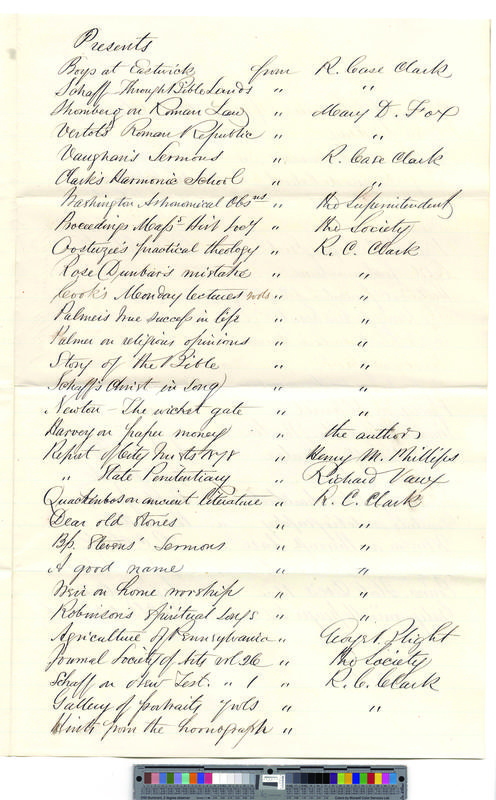 Presents
Boys at Eastwick from R. Case Clark
Schaff Through Bible Lands " "
on Roman Law " Mary D. Fox
Vertot's Roman Republic " "
Vaughan's Sermons " R. Case Clark
Clark's Harmonic School " "
Washington Astronomical Obsns " the Superintendent
Proceedings Mass. Hist Socy " the Society
Oosterzee's practical theology " R. C. Clark
Rose Dunbar's mistake " "
Cook's Monday lectures vols " "
Palmer's true success in life " "
Palmer on religious opinions " "
Story of the Bible " "
Schaff's Christ in Song " "
Newton - The wicket gate " "
Harvey on paper money " the author
Report of City 1878 " Henry M. Phillips
" State Penitentiary " Richard Vaux
Quackenbos on ancient Literature " R. C. Clark
Dear old Stories " "
Bp. Stevens' Sermons " "
A good name " "
Weir on home worship " "
Robinson's Spiritual Songs " "
Agriculture of Pennsylvania "
Journal Society of Arts vol 26 " the Society
Schaff on New Test. " 1 " R. C. Clark
Gallery of portraits 7 vols " "
Hints from the "